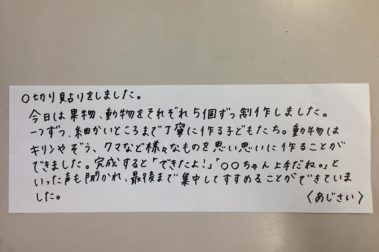 ○切り貼りをしました。
今日は果物、動物をそれぞれ5個ずつ制作しました。
一つずつ、細かいところまで丁寧に作る子どもたち。動物は
キリンやぞう、クマなど様々なものを思い思いに作ることが
できました。完成すると「できたよ！」「○○ちゃん上手だね。」と
いった声も聞かれ、最後まで集中してすすめることができていま
した。
〈あじさい〉